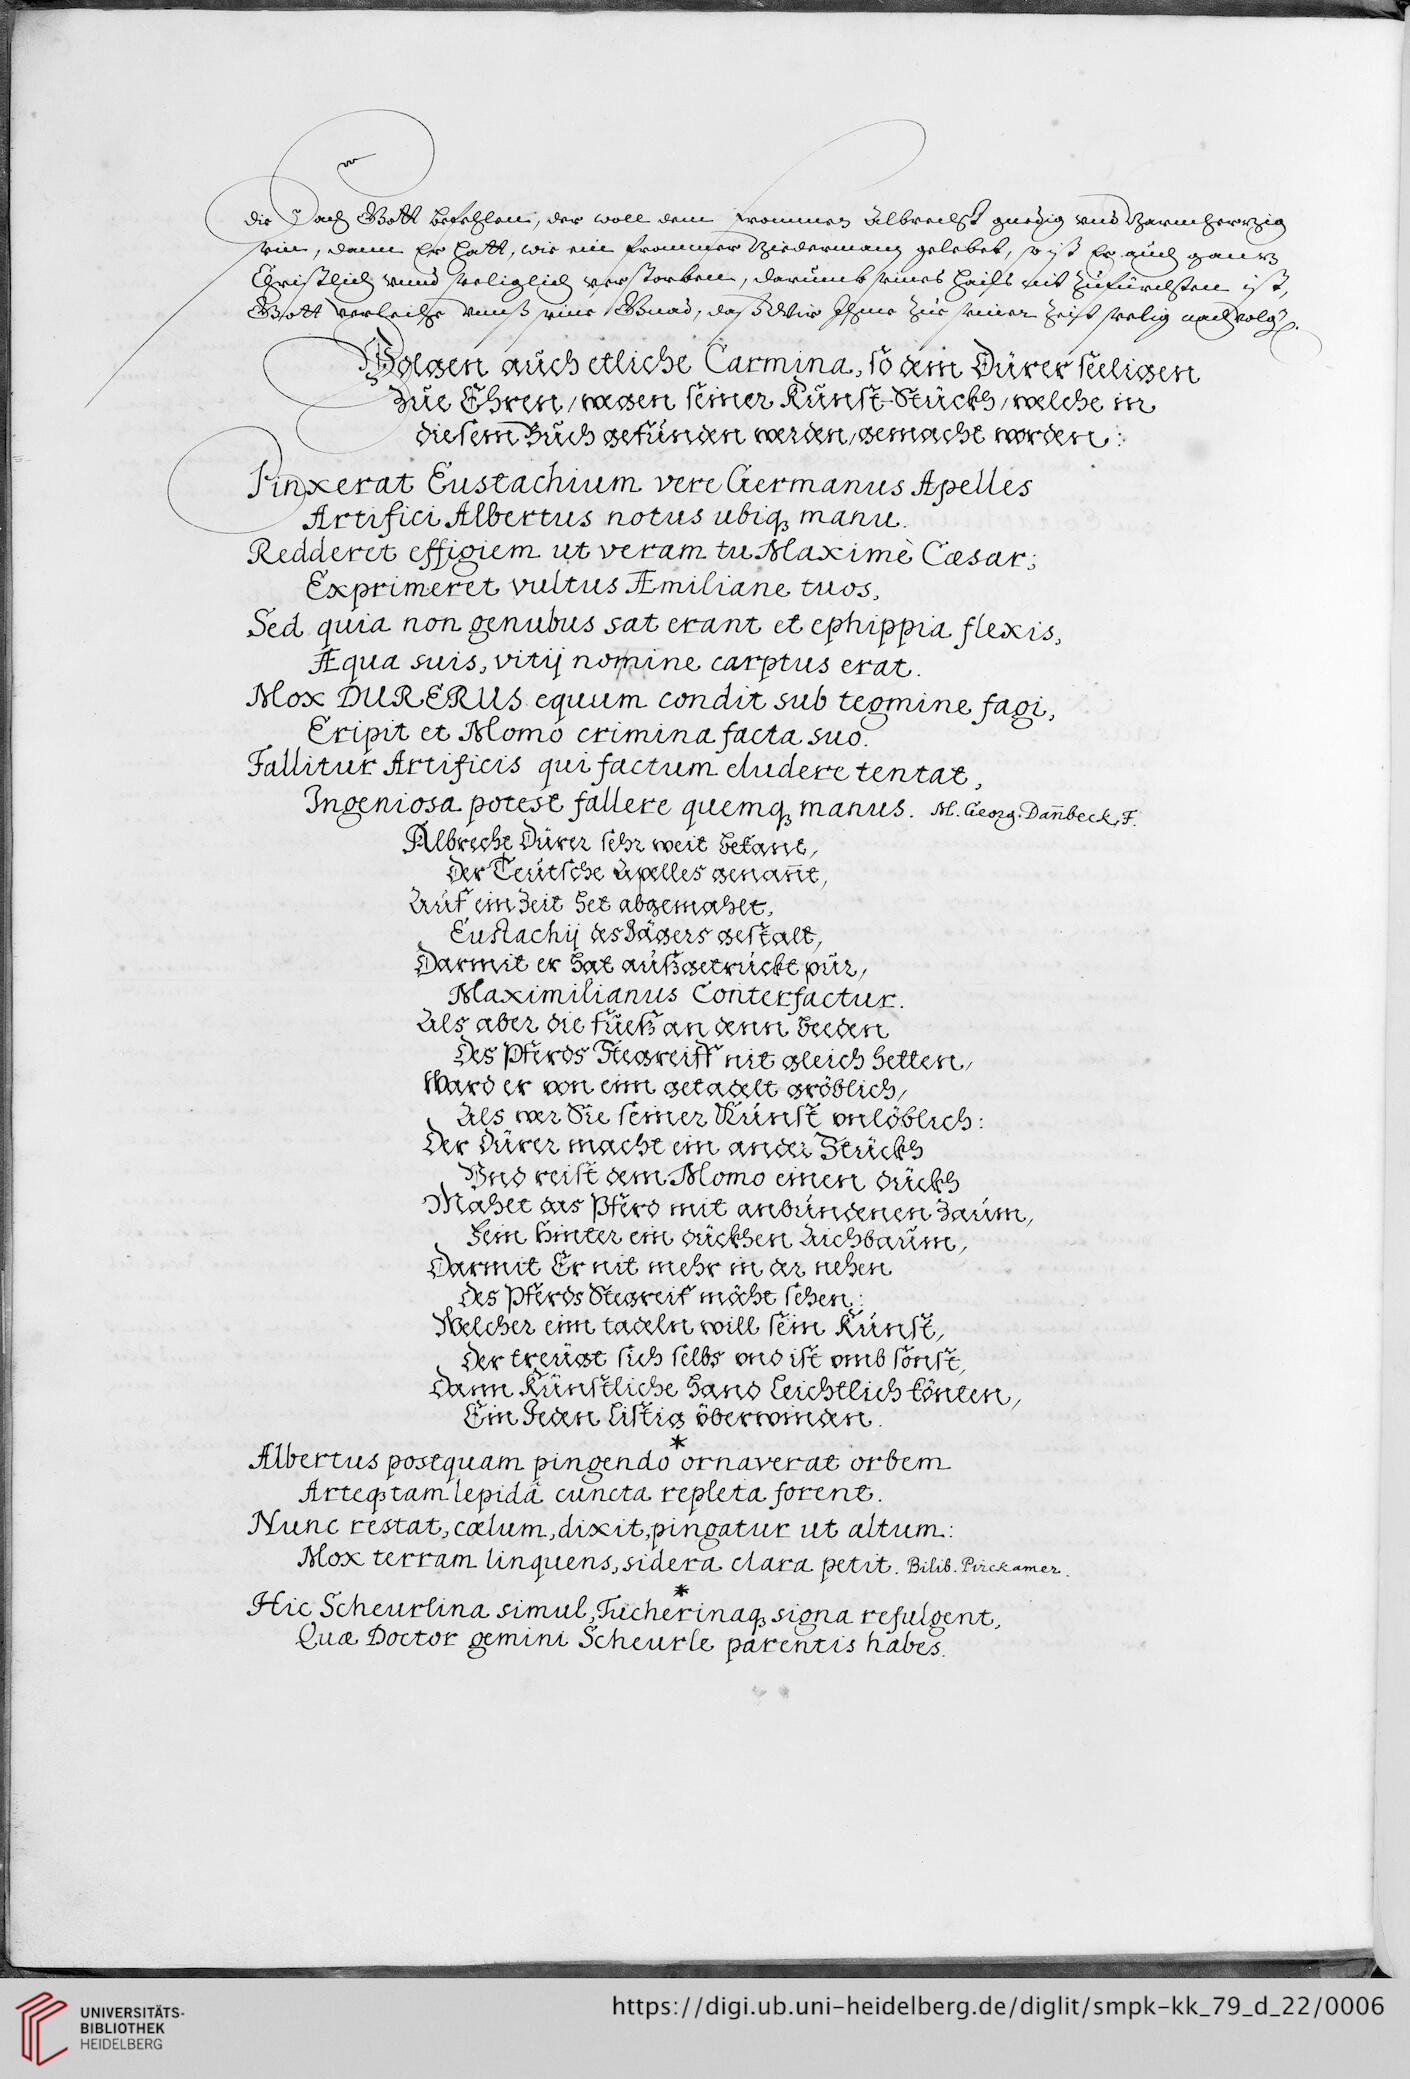 die Sach Gott befehlen, der woll dem frommen Albrecht gnedig vnd Barmherzig
sein, dann Er hatt, wie ein frommer Biedermann gelebet, so ist Er auch ganz
Christlich vnnd seeliglich verstorben, darumb seines Hails nit zufürchten ist,
Gott verleihe vnnß seine Gnad, daß Wir Ihme zue seiner Zeit seelig nachvolg
Volgen auch etliche Carmina, so dem Dürer seeligen
zue Ehren, wegen seiner Kunst-Stückh, welche in
diesem Buch gefunden werden, gemacht worden:
Pinxerat Eustachium vere Germanus Apelles
Artifici Albertus notus ubiq; manu.
Redderet effigiem ut veram tu Maximè Cæsar;
Exprimeret vultus Æmiliane tuos,
Sed quia non genubus sat erant et ephippia flexis,
Æqua suis, vitij nomine carptus erat.
Mox DURERUS equum condit sub tegmine fagi,
Eripit et Momo crimina facta suo.
Fallitur Artificis qui factum eludere tentat,
Ingeniosa potest fallere quemq; manus. M. Georg. Dañbeck, F.
Albrecht Dürer sehr weit bekant,
Der Teutsche Apelles genañt,
Auf ein Zeit het abgemahlet,
Eustachij des Jägers gestalt,
Darmit er hat außgetruckt pur,
Maximilianus Conterfactur.
Als aber die füeß an denn beeden
Des Pferds Stegreiff nit gleich hetten,
Ward er von eim getadelt gröblich,
Als wer Sie seiner Kunst vnlöblich:
Der Dürer macht ein ander Stückh
Vnd reist dem Momo einen dückh
Mahet das Pferd mit anbundenen Zaum,
Fein hinter ein dückhen Aichbaum,
Darmit Er nit mehr in der nehen
Des Pferds Stegreif möcht sehen:
Welcher eim tadeln will sein Kunst,
Der treugt sich selbs vnd ist vmb sonst,
Dann Künstliche Hand leichtlich könten,
Ein Jeden listig überwinden.
*
Albertus postquam pingendo ornaverat orbem
Arteq; tam lepidâ cuncta repleta forent.
Nunc restat, cœlum, dixit, pingatur ut altum:
Mox terram linquens, sidera clara petit. Bilib. Pirckamer.
*
Hic Scheurlina simul, Tucherinaq; signa refulgent,
Quæ Doctor gemini Scheurle parentis habes.
UNIVERSITÄTS-
BIBLIOTHEK
HEIDELBERG
https://digi.ub.uni-heidelberg.de/diglit/smpk-kk_79_d_22/0006